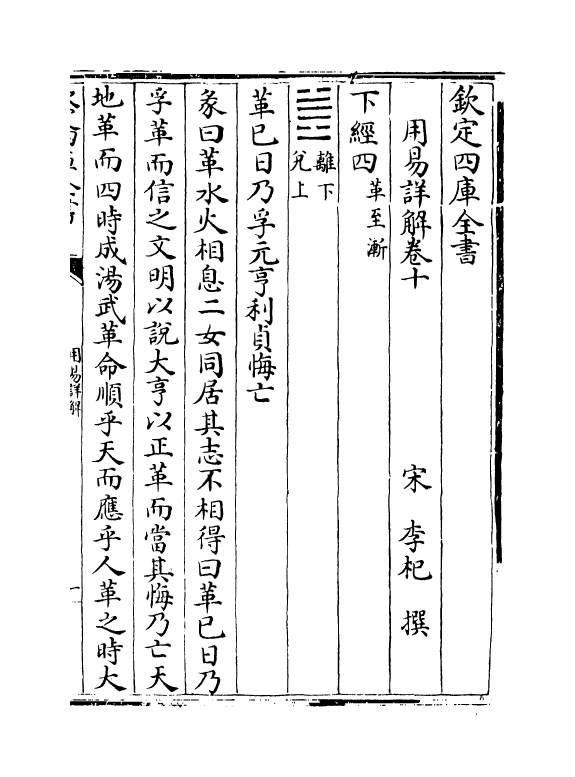 欽定四庫全書
用易詳解卷十
宋 李杞 撰
下經四 革至漸
䷰ 離下 兌上
革已日乃孚元亨利貞悔亡
彖曰革水火相息二女同居其志不相得曰革已日乃
孚革而信之文明以說大亨以正革而當其悔乃亡天
地革而四時成湯武革命順乎天而應乎人革之時大
用易詳解
一